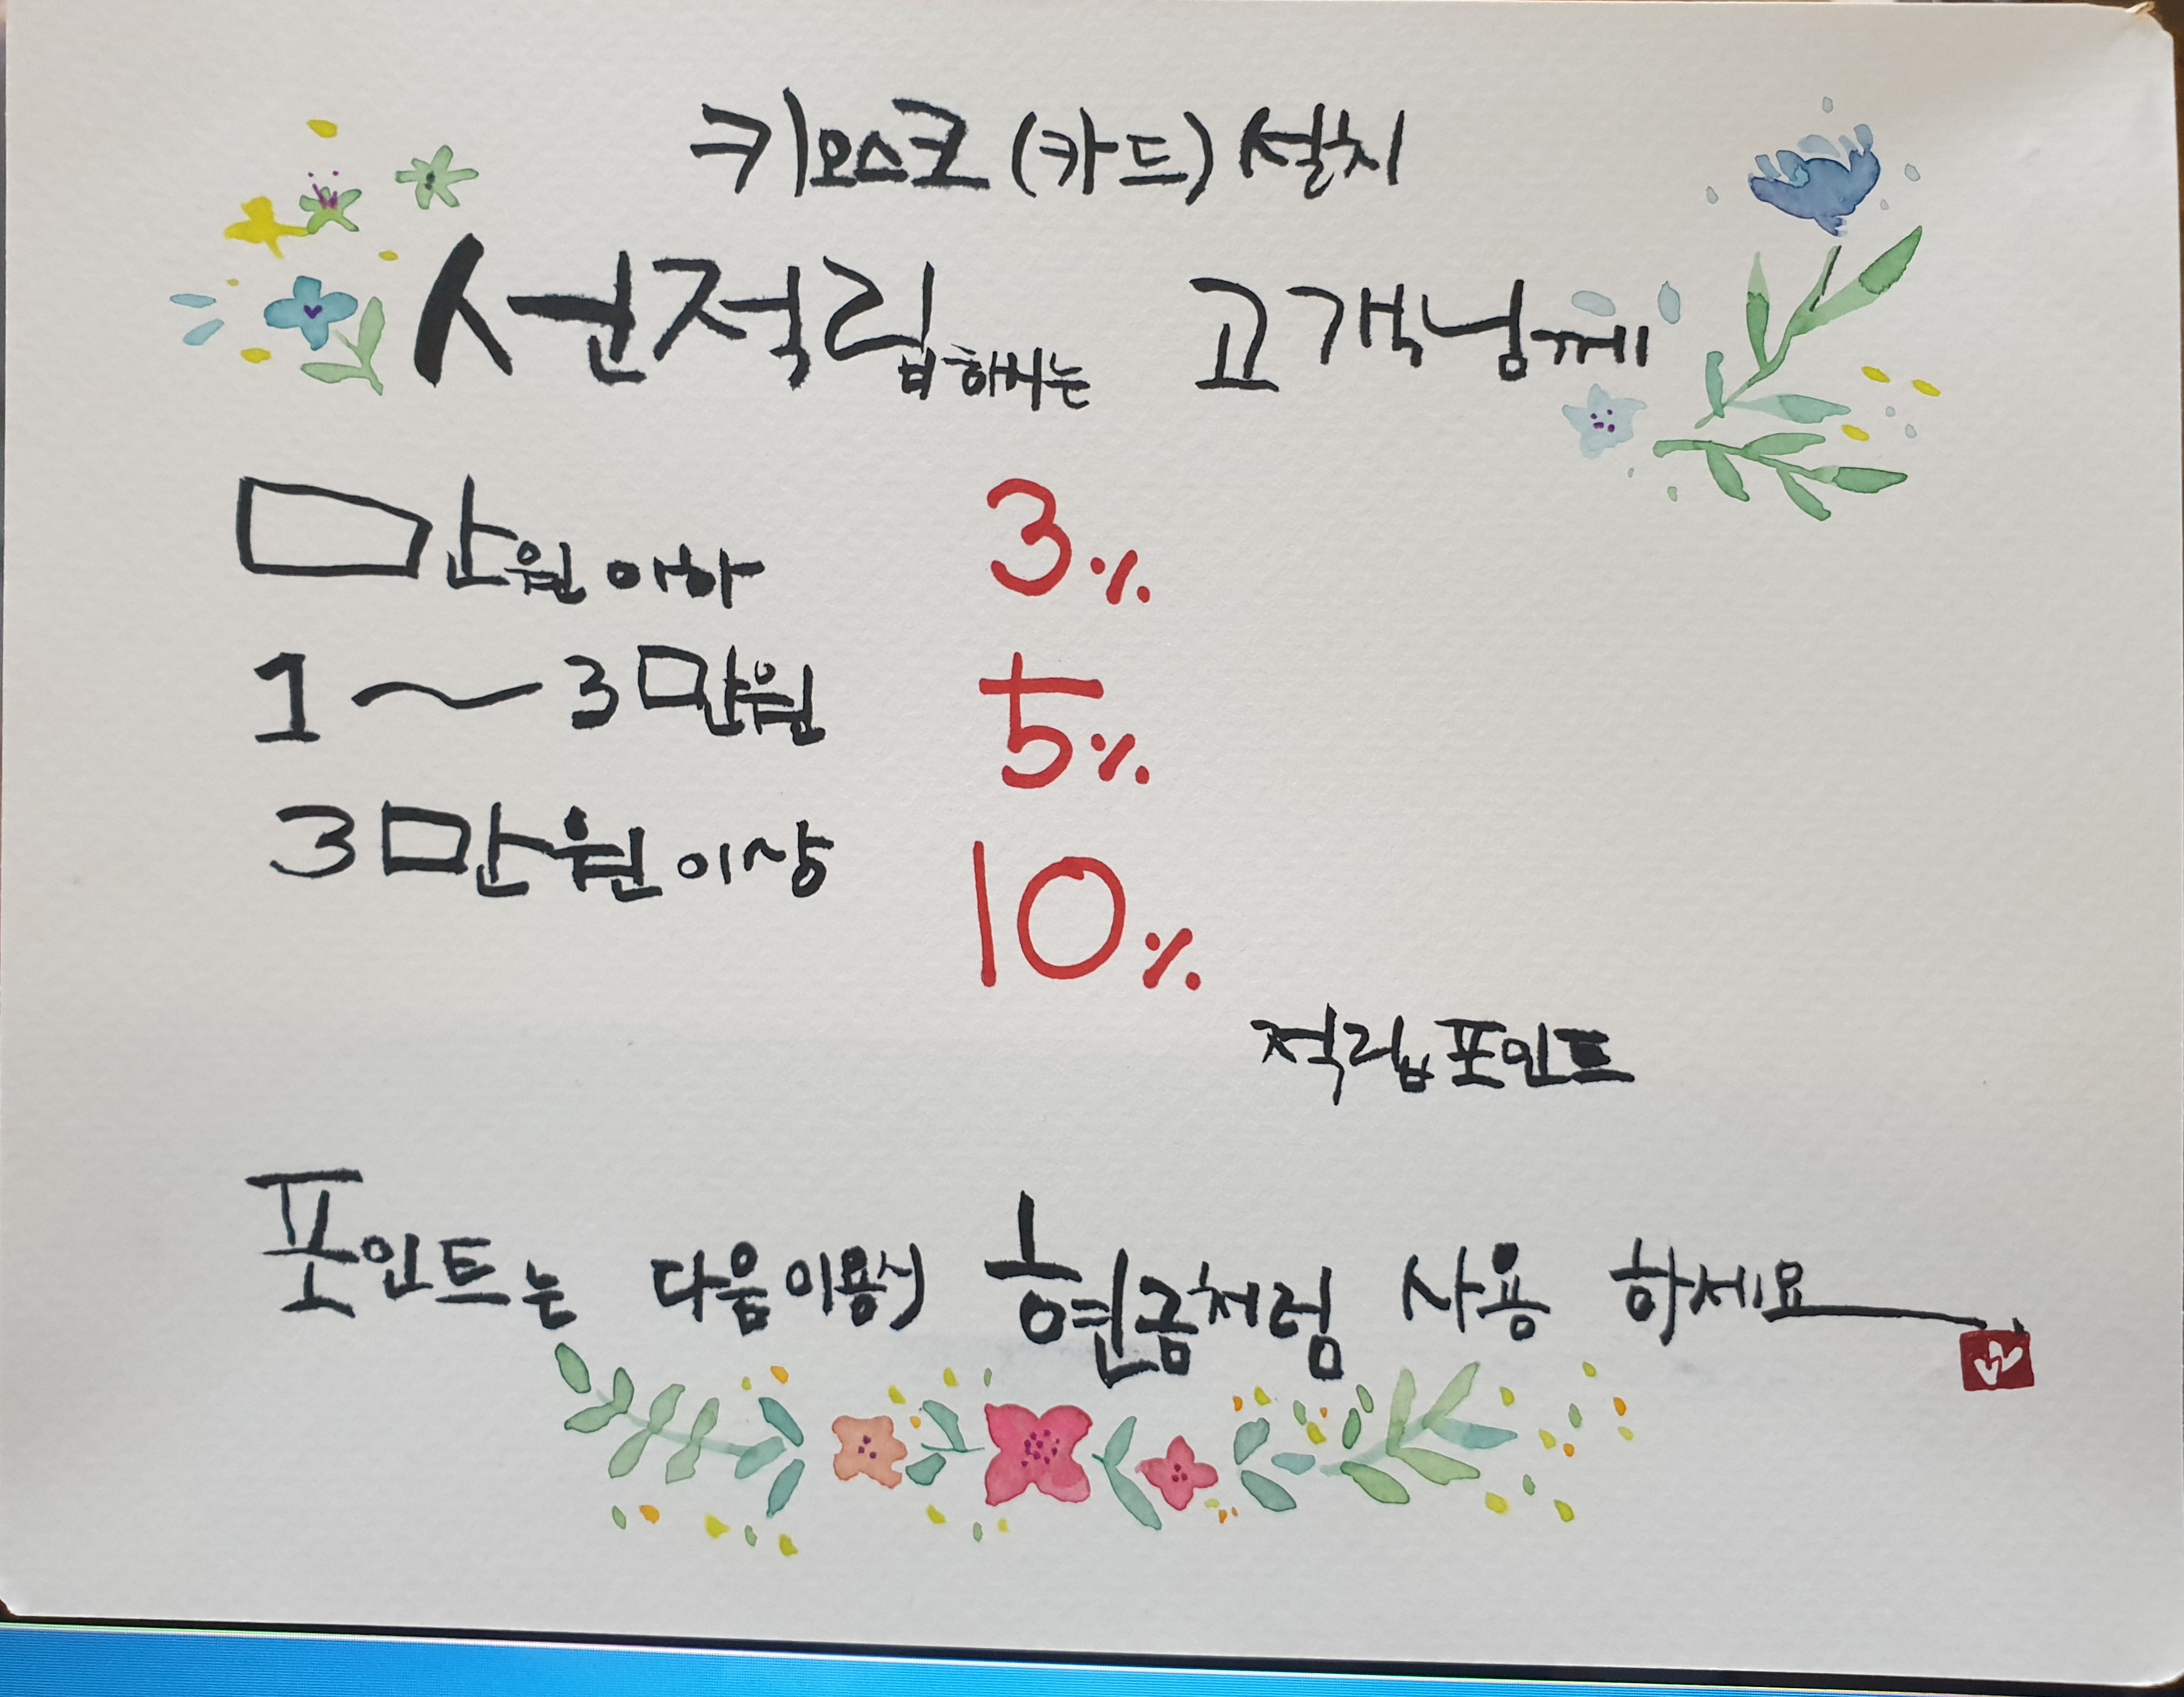 키오스크 (카드) 설치
선적립하시는 고객님께
만원 이하 3%
1~3만원 5%
3만원 이상 10%
적립 포인트
포인트는 다음 이용시 현금처럼 사용 하세요